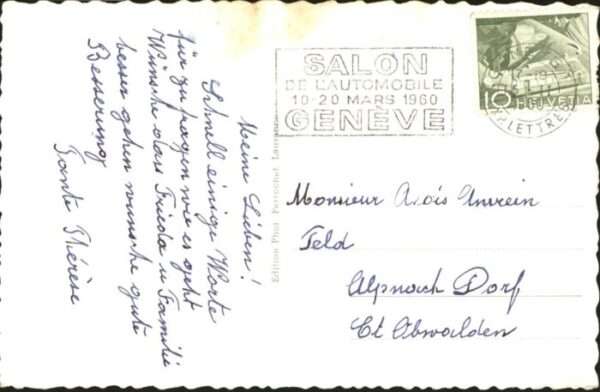 Meine Lieben!
Schnell einige Worte
für zu fragen wie es geht
Wünsche dass Frieda u Familie
besser gehen wünsche gute
Besserung
Tante Thérèse
Edition Phot. Perrochet Lausanne
SALON
DE L'AUTOMOBILE
10-20 MARS 1960
GENEVE
10 HELVETIA
LETTRES
Monsieur Alois Amrein
Feld
Alpnach Dorf
Ct Obwalden